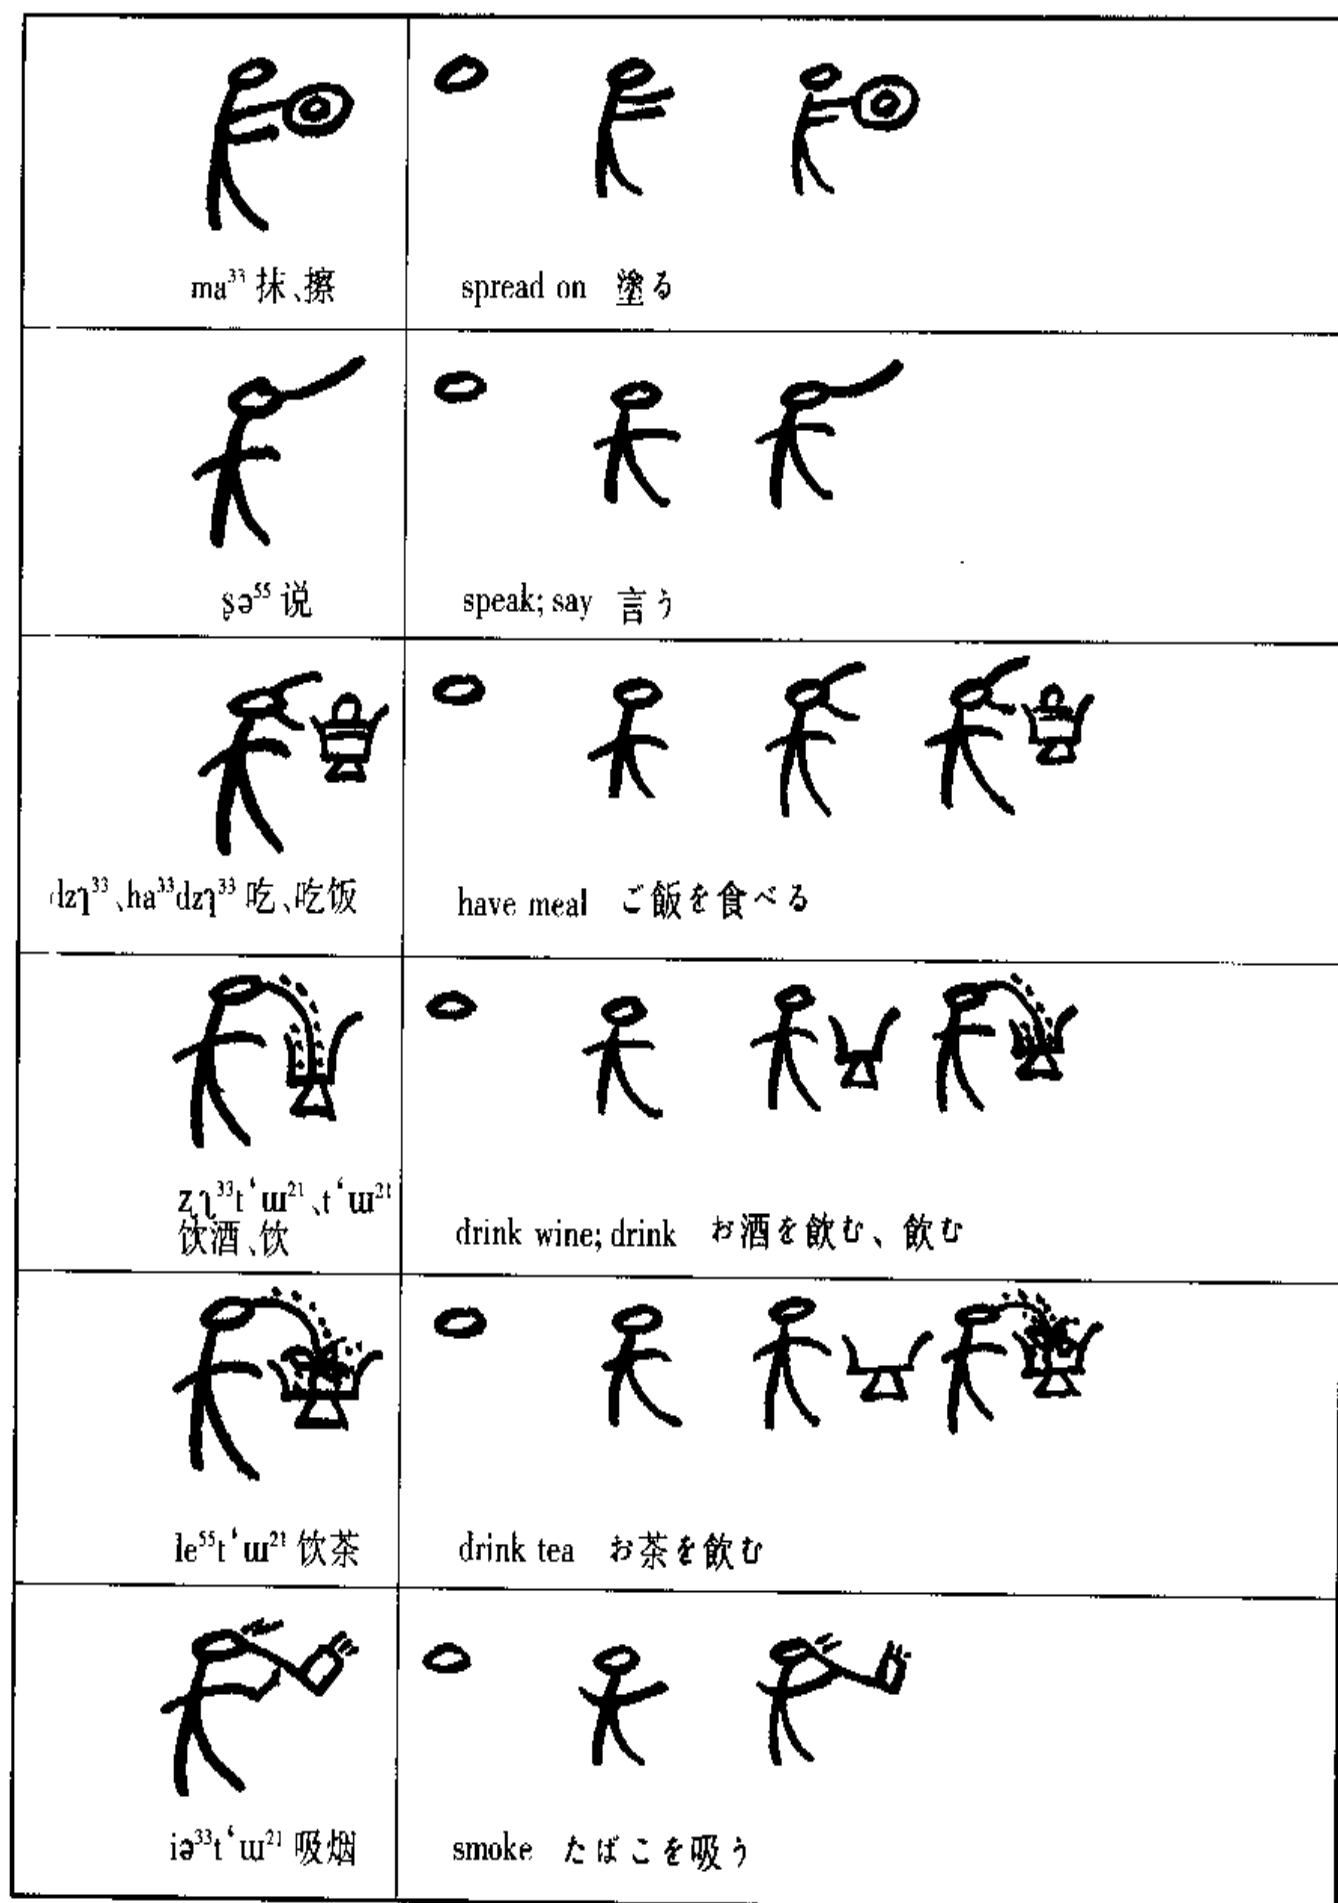 ma³³ 抹、擦
spread on 塗る
ʂə⁵⁵ 说
speak; say 言う
dzɿ³³、ha³³dzɿ³³ 吃、吃饭
have meal ご飯を食べる
ʐʅ³³t‘ɯ²¹、t‘ɯ²¹
饮酒、饮
drink wine; drink お酒を飲む、飲む
le⁵⁵t‘ɯ²¹ 饮茶
drink tea お茶を飲む
iə³³t‘ɯ²¹ 吸烟
smoke たばこを吸う